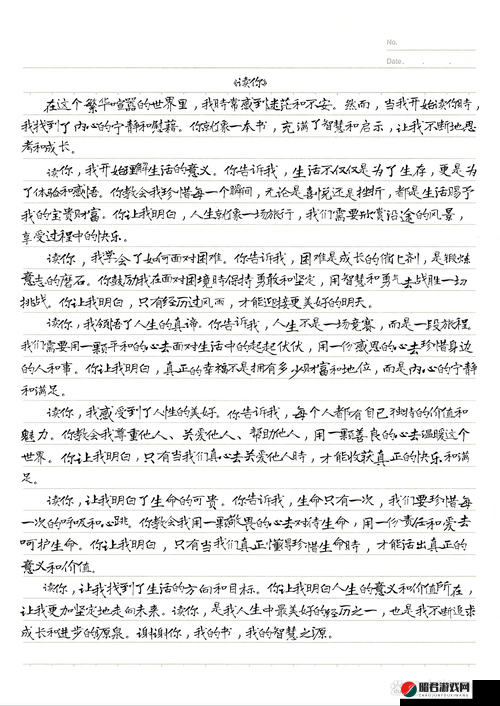 No.
Date.
《读你》
在这个繁华喧嚣的世界里，我时常感到迷茫和不安。然而，当我开始读你时，
我找到了内心的宁静和慰藉。你就像一本书，充满了智慧和启示，让我不断地思
考和成长。
读你，我开始理解生活的意义。你告诉我，生活不仅仅是为了生存，更是为
了体验和感悟。你教会我珍惜每一个瞬间，无论是喜悦还是挫折，都是生活赐予
我的宝贵财富。你让我明白，人生就像一场旅行，我们需要欣赏沿途的风景，
享受过程中的快乐。
读你，我学会了如何面对困难。你告诉我，困难是成长的催化剂，是锻炼
意志的磨石。你鼓励我在面对困境时保持勇敢和坚定，用智慧和勇气去战胜一切
挑战。你让我明白，只有经历过风雨，才能迎接更美好的明天。
读你，我领悟了人生的真谛。你告诉我，人生不是一场竞赛，而是一段旅程。
我们需要用一颗平和的心去面对生活中的起起伏伏，用一份感恩的心去珍惜身边
的人和事。你让我明白，真正的幸福不是拥有多少财富和地位，而是内心的宁静
和满足。
读你，我感受到了人性的美好。你告诉我，每个人都有自己独特的价值和
魅力。你教会我尊重他人、关爱他人、帮助他人，用一颗善良的心去温暖这个
世界。你让我明白，只有当我们真心去关爱他人时，才能收获真正的快乐和满
足。
读你，让我明白了生命的可贵。你告诉我，生命只有一次，我们要珍惜每
一次的呼吸和心跳。你教会我用一颗敬畏的心去对待生命，用一份责任和爱去
呵护生命。你让我明白，只有当我们真正懂得珍惜生命时，才能活出真正的
意义和价值。
读你，让我找到了生活的方向和目标。你让我明白人生的意义和价值所在，
让我更加坚定地走向未来。读你，是我人生中最美好的经历之一，也是我不断追求
成长和进步的源泉。谢谢你，我的书，我的智慧之源。
昭君游戏网